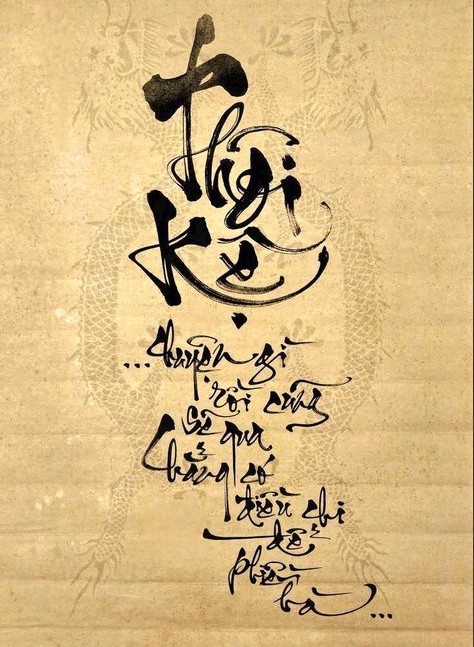 Thôi
Kệ
...chuyện gì
rồi cũng
sẽ qua
chẳng có
điều chi
để
phiền
hà...